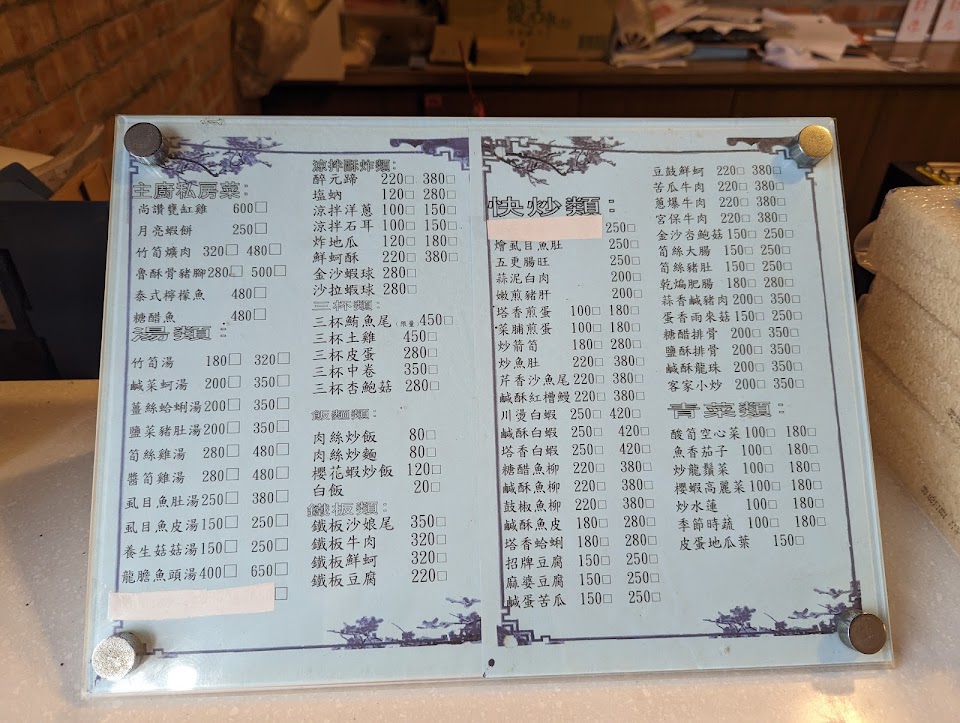 主廚私房菜：
尚讚甕缸雞 600□
月亮蝦餅 250□
竹筍爌肉 320□ 480□
魯酥骨豬腳 280□ 500□
泰式檸檬魚 480□
糖醋魚 480□
湯類：
竹筍湯 180□ 320□
鹹菜蚵湯 200□ 350□
薑絲蛤蜊湯 200□ 350□
鹽菜豬肚湯 200□ 350□
筍絲雞湯 280□ 480□
醬筍雞湯 280□ 480□
虱目魚肚湯 250□ 380□
虱目魚皮湯 150□ 250□
養生菇菇湯 150□ 250□
龍膽魚頭湯 400□ 650□
□
涼拌酥炸類：
醉元蹄 220□ 380□
塩蚋 120□ 280□
涼拌洋蔥 100□ 150□
涼拌石耳 100□ 150□
炸地瓜 120□ 180□
鮮蚵酥 220□ 380□
金沙蝦球 280□
沙拉蝦球 280□
三杯類：
三杯鮪魚尾(限量) 450□
三杯土雞 450□
三杯皮蛋 280□
三杯中卷 350□
三杯杏鮑菇 280□
飯麵類：
肉絲炒飯 80□
肉絲炒麵 80□
櫻花蝦炒飯 120□
白飯 20□
鐵板類：
鐵板沙娘尾 350□
鐵板牛肉 320□
鐵板鮮蚵 320□
鐵板豆腐 220□
快炒類：
250□
燴虱目魚肚 250□
五更腸旺 250□
蒜泥白肉 200□
嫩煎豬肝 200□
塔香煎蛋 100□ 180□
菜脯煎蛋 100□ 180□
炒箭筍 180□ 280□
炒魚肚 220□ 380□
芹香沙魚尾 220□ 380□
鹹酥紅糟鰻 220□ 380□
川燙白蝦 250□ 420□
鹹酥白蝦 250□ 420□
塔香白蝦 250□ 420□
糖醋魚柳 220□ 380□
鹹酥魚柳 220□ 380□
鼓椒魚柳 220□ 380□
鹹酥魚皮 180□ 280□
塔香蛤蜊 180□ 280□
招牌豆腐 150□ 250□
麻婆豆腐 150□ 250□
鹹蛋苦瓜 150□ 250□
豆鼓鮮蚵 220□ 380□
苦瓜牛肉 220□ 380□
蔥爆牛肉 220□ 380□
宮保牛肉 220□ 380□
金沙杏鮑菇 150□ 250□
筍絲大腸 150□ 250□
筍絲豬肚 150□ 250□
乾煸肥腸 180□ 280□
蒜香鹹豬肉 200□ 350□
蛋香雨來菇 150□ 250□
糖醋排骨 200□ 350□
鹽酥排骨 200□ 350□
鹹酥龍珠 200□ 350□
客家小炒 200□ 350□
青菜類：
酸筍空心菜 100□ 180□
魚香茄子 100□ 180□
炒龍鬚菜 100□ 180□
櫻蝦高麗菜 100□ 180□
炒水蓮 100□ 180□
季節時蔬 100□ 180□
皮蛋地瓜葉 150□